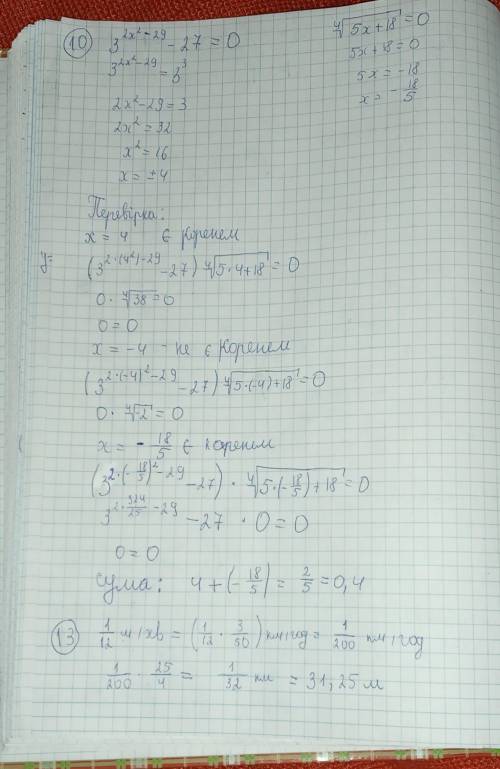 10 3^{2x²-29} - 27 = 0
3^{2x²-29} = 3³
2x²-29=3
2x²=32
x²=16
x=±4
⁴√(5x+18) = 0
5x+18=0
5x=-18
x= -18/5
Перевірка:
x = 4 є коренем
y=
(3^{2·(4²)-29} - 27) ⁴√(5·4+18) = 0
0 · ⁴√38 = 0
0 = 0
x = -4 - не є коренем
(3^{2·(-4)²-29} - 27) ⁴√(5·(-4)+18) = 0
0 · ⁴√-2 = 0
x = - 18/5 є коренем
(3^{2·(-18/5)²-29} - 27) · ⁴√(5·(-18/5)+18) = 0
3^{2·324/25-29} - 27 · 0 = 0
0 = 0
сума: 4+(-18/5) = 2/5 = 0,4
13 1/12 м/хв = (1/12 · 3/50) км/год = 1/200 км/год
1/200 · 25/4 = 1/32 км = 31,25 м